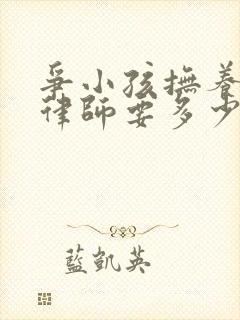 爭小孩撫養
律師要多少
藍凱英